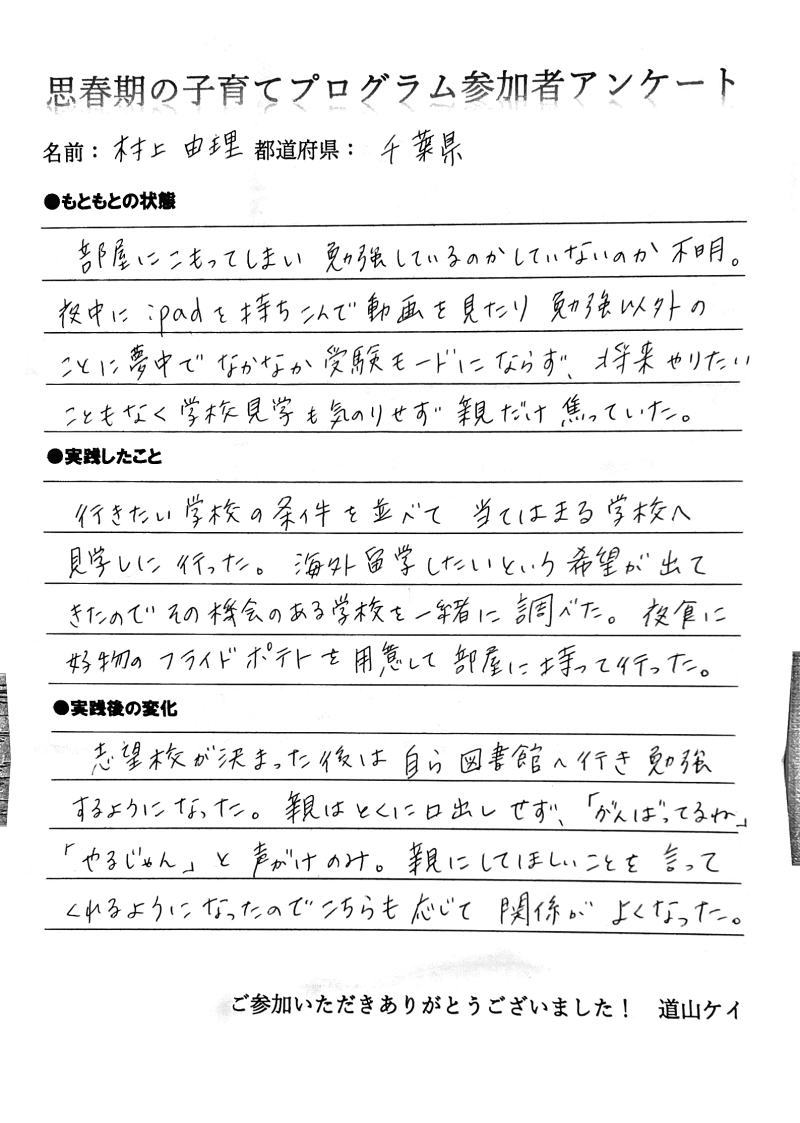 思春期の子育てプログラム参加者アンケート
名前： 村上 由理 都道府県： 千葉県
●もともとの状態
部屋にこもってしまい 勉強しているのかしていないのか 不明。
夜中に ipadを持ちこんで動画を見たり 勉強以外の
ことに夢中で なかなか受験モードにならず、将来やりたい
こともなく学校見学も気のりせず 親だけ焦っていた。
●実践したこと
行きたい学校の条件を並べて 当てはまる学校へ
見学しに 行った。 海外留学したいという希望が出て
きたので その機会のある学校を一緒に調べた。 夜食に
好物の フライドポテトを用意して部屋に持って行った。
●実践後の変化
志望校が決まった後は 自ら図書館へ行き 勉強
するようになった。 親はとくに口出しせず、「がんばってるね」
「やるじゃん」と 声がけのみ。 親にしてほしいことを 言って
くれるようになったのでこちらも応じて 関係が よくなった。
ご参加いただきありがとうございました！ 道山ケイ